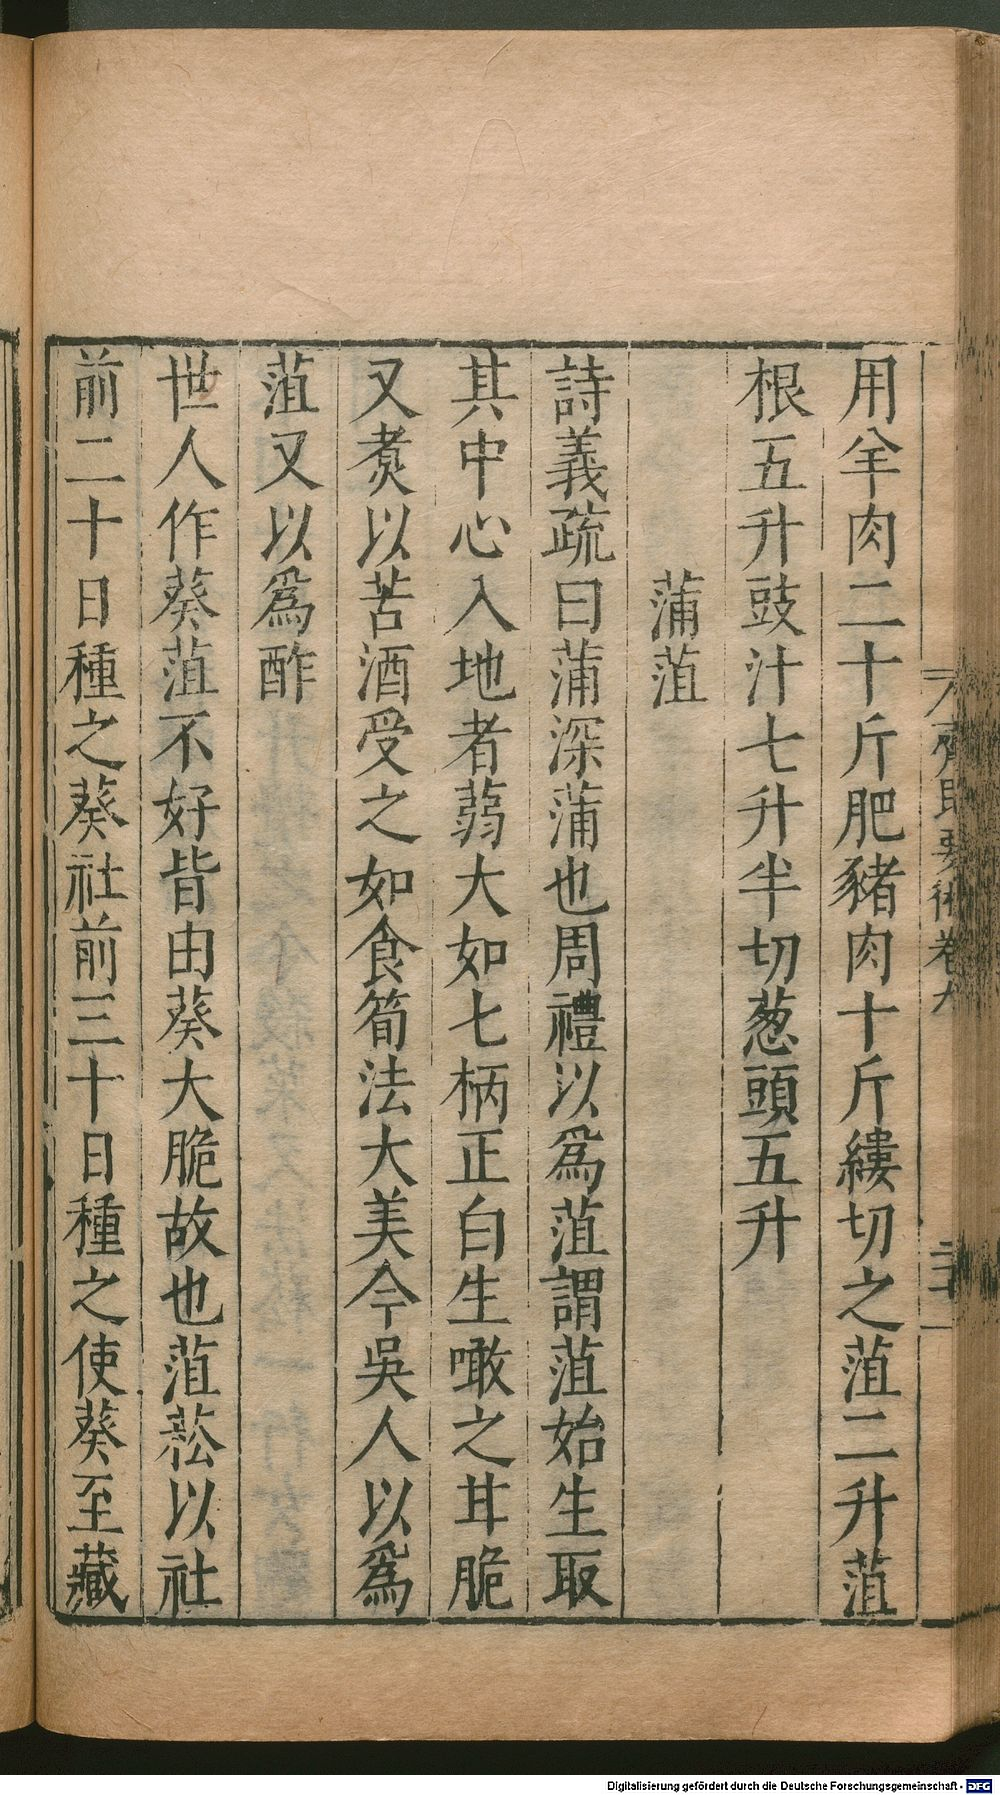 用羊肉二十斤肥豬肉十斤縷切之菹二升菹
根五升豉汁七升半切葱頭五升
蒲菹
詩義疏曰蒲深蒲也周禮以爲菹謂菹始生取
其中心入地者蒻大如七柄正白生噉之甘脆
又煑以苦酒受之如食筍法大美今吳人以爲
菹又以爲酢
世人作葵菹不好皆由葵大脆故也菹菘以社
前二十日種之葵社前三十日種之使葵至藏
齊民要術卷九
Digitalisierung gefördert durch die Deutsche Forschungsgemeinschaft - DFG